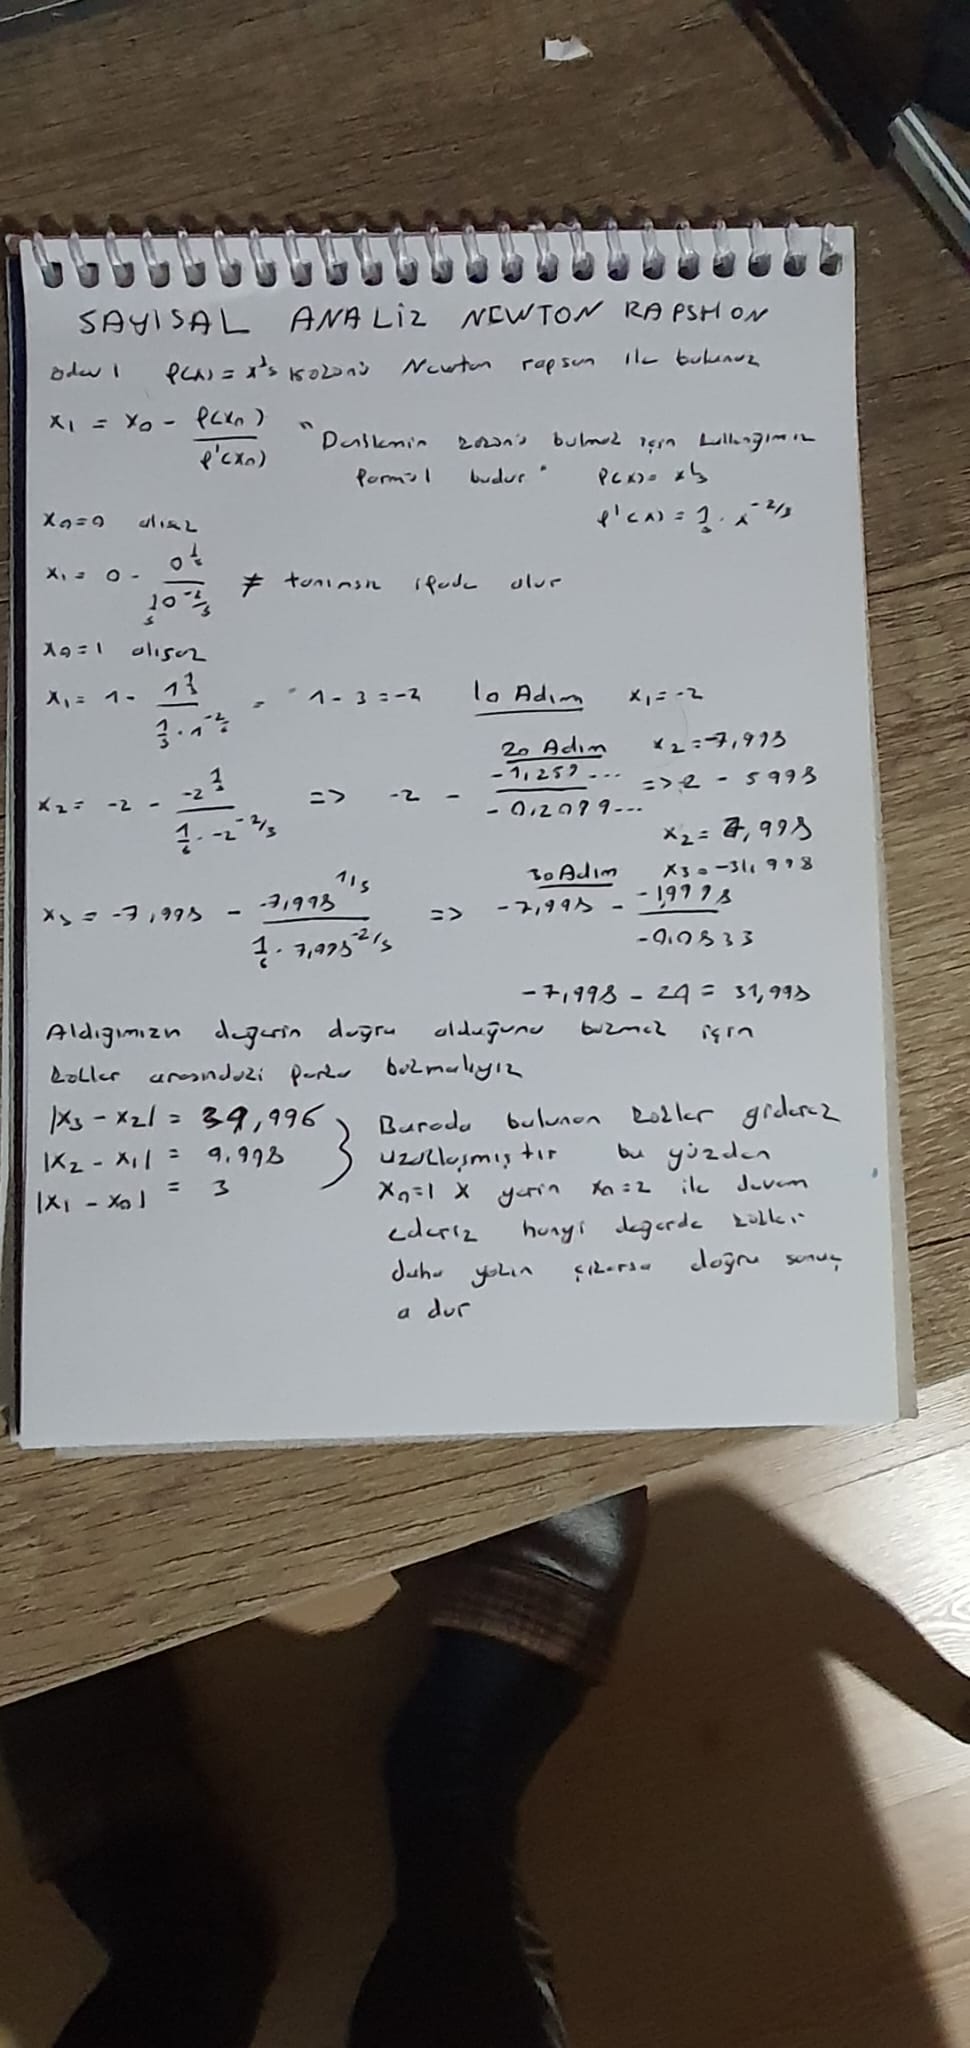 SAYISAL ANALİZ NEWTON RAPSHON
ödev 1 f(x) = x^1/3 kökünü Newton rapson ile bulunuz
x1 = x0 - f(xn) / f'(xn) "Denklemin kökünü bulmak için kullandığımız
formül budur" f(x) = x^1/3
x0=0 alırsak f'(x) = 1/3 . x^-2/3
x1 = 0 - 0^1/3 / 1/3 0^-2/3 ≠ tanımsız ifade olur
x0=1 alırsak
x1 = 1 - 1^1/3 / 1/3 . 1^-2/3 = 1 - 3 = -2 1o Adım x1 = -2
2o Adım x2 = -7,998
x2 = -2 - -2^1/3 / 1/3 . -2^-2/3 => -2 - -1,259... / -0,2099... => 2 - 5998
x2 = 7,998
3o Adım x3 = -31,998
x3 = -7,998 - -7,998^1/3 / 1/3 . 7,998^-2/3 => -7,998 - -1,9998 / -0,0833
-7,998 - 24 = 31,998
Aldığımızın değerin doğru olduğunu bulmak için
kökler arasındaki farka bakmalıyız
|x3 - x2| = 39,996
|x2 - x1| = 9,998
|x1 - x0| = 3
Burada bulunan kökler giderek
uzaklaşmıştır bu yüzden
x0=1 x yerin x0=2 ile devam
ederiz hangi değerde kökler
daha yakın çıkarsa doğru sonuç
o dur